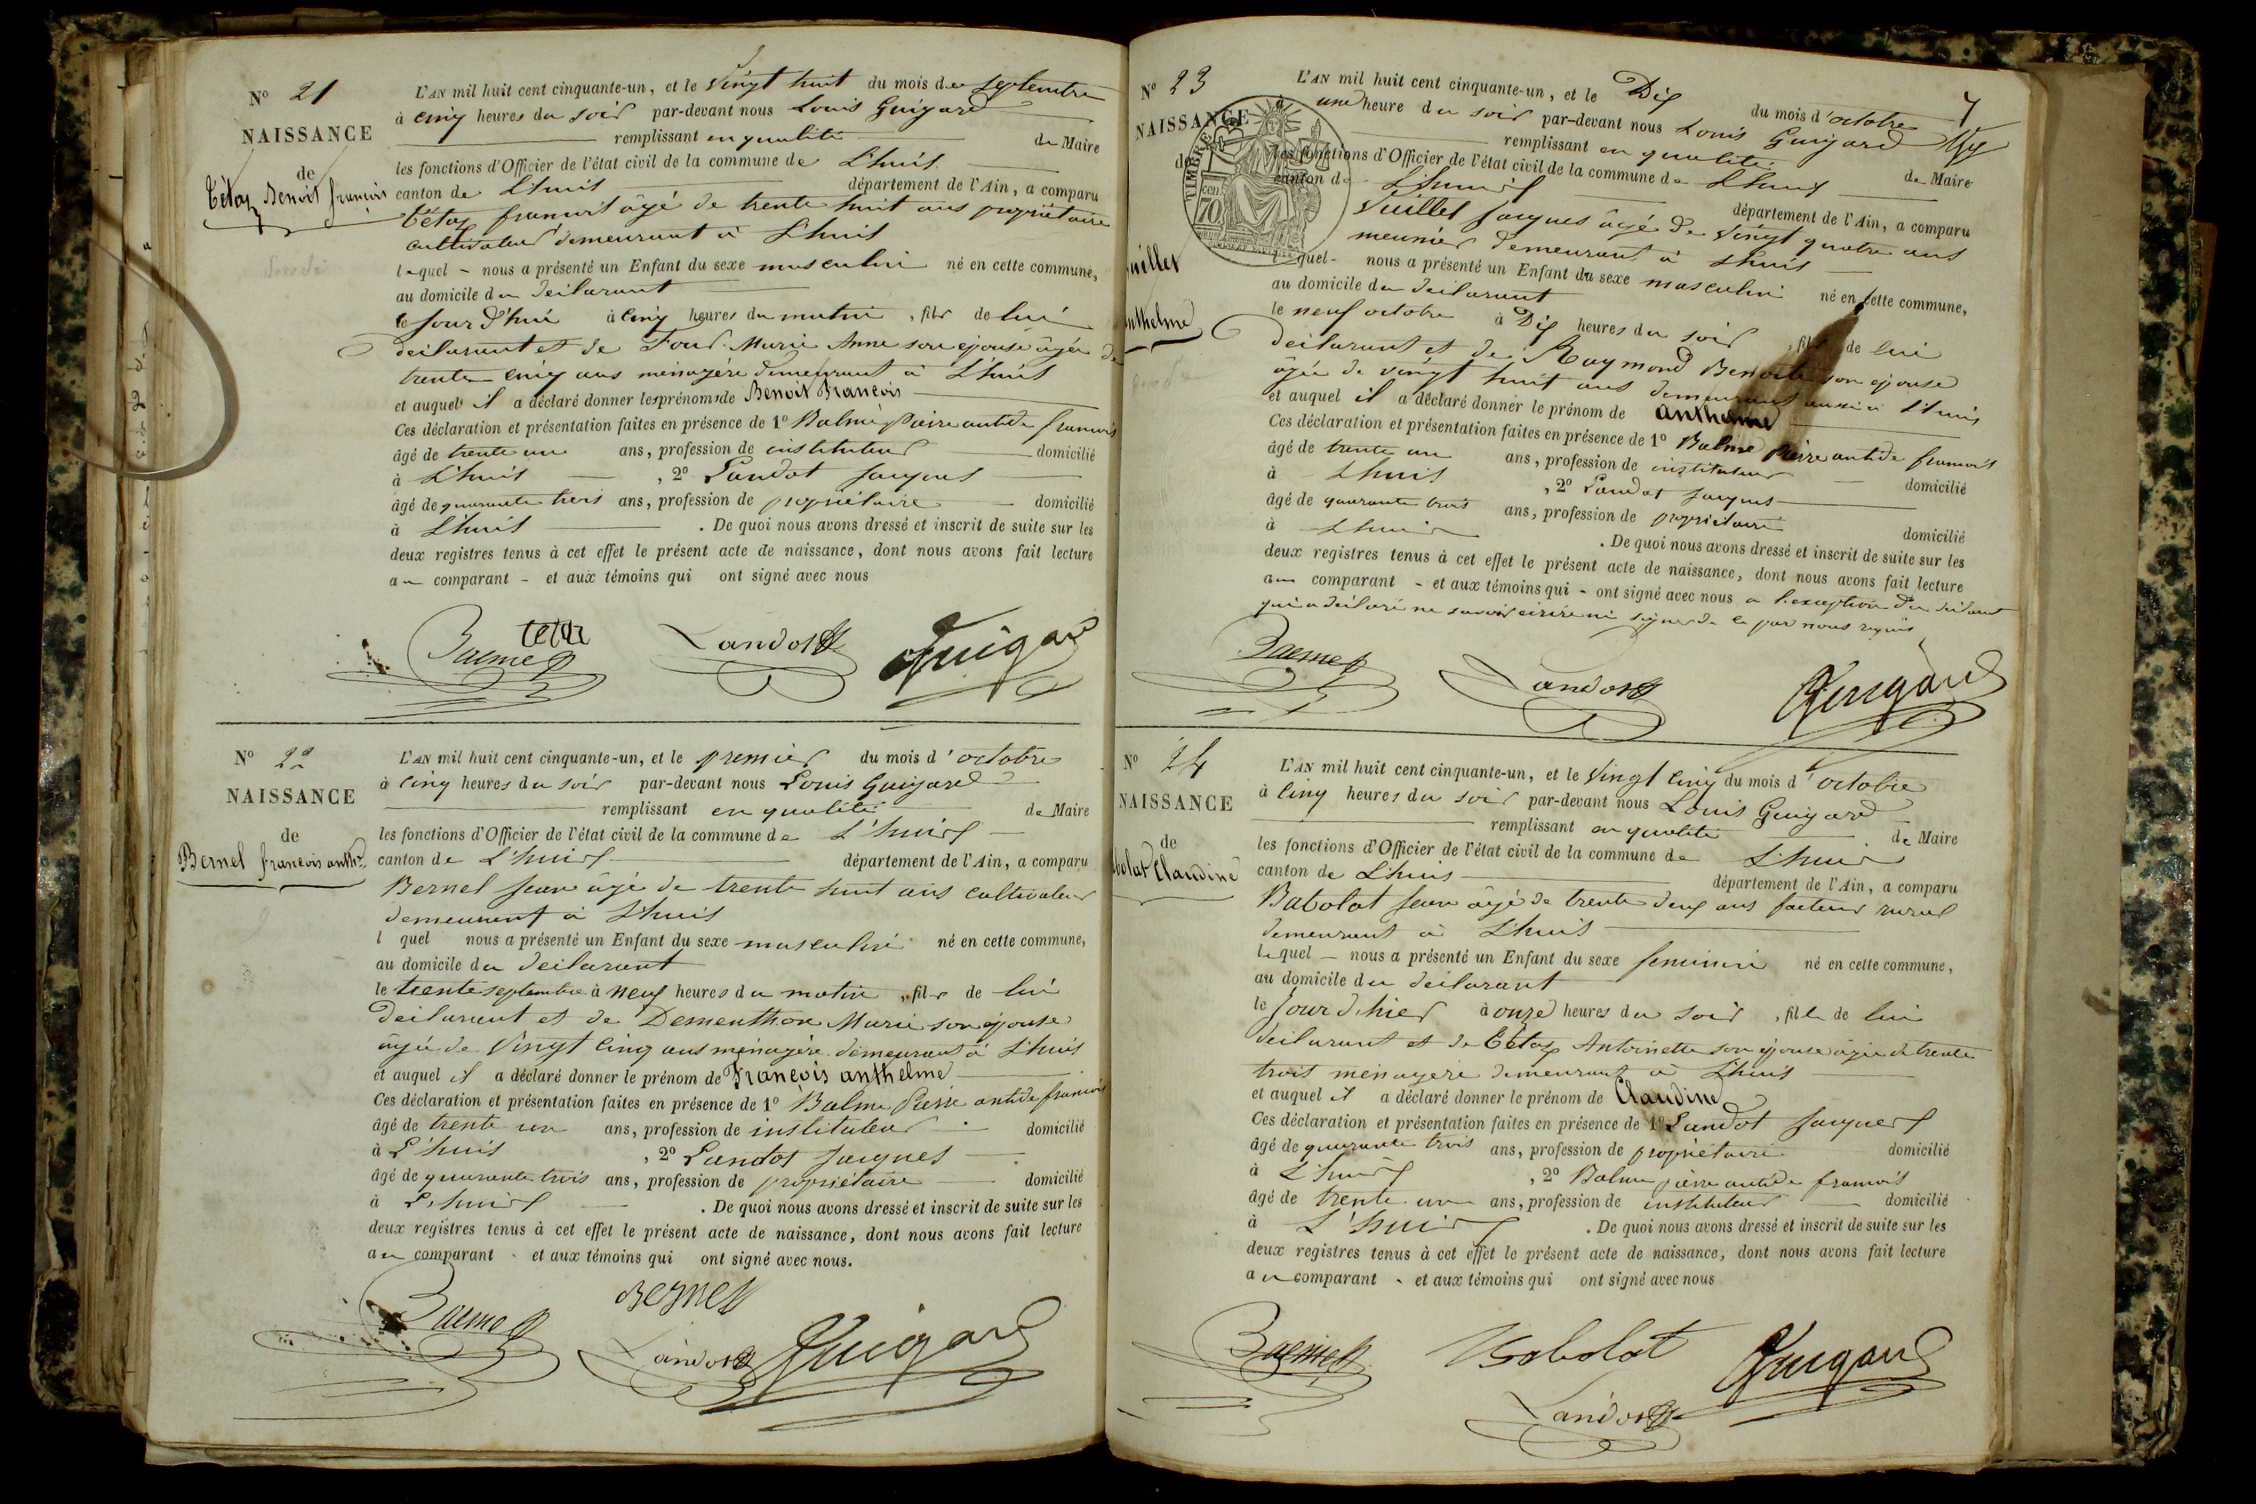 N° 21
NAISSANCE
de
Tétaz Benoit françois
L'AN mil huit cent cinquante-un, et le Vingt huit du mois de septembre
à cinq heures du soir par-devant nous Louis Guigard
remplissant en qualité de Maire
les fonctions d'Officier de l'état civil de la commune de L'huis
canton de L'huis département de l'Ain, a comparu
Tétaz francois âgé de trente huit ans propriétaire
cultivateur demeurant à L'huis
lequel nous a présenté un Enfant du sexe masculin né en cette commune,
au domicile du déclarant
le jour d'hui à cinq heures du matin, fils de lui
déclarant et de Marie Anne son épouse âgée de
trente cinq ans ménagère demeurant à L'huis
et auquel il a déclaré donner les prénoms de Benoit François
Ces déclaration et présentation faites en présence de 1° Balme pierre antide francois
âgé de trente un ans, profession de instituteur domicilié
à L'huis , 2° Landot jacques
âgé de quarante trois ans, profession de propriétaire domicilié
à L'huis . De quoi nous avons dressé et inscrit de suite sur les
deux registres tenus à cet effet le présent acte de naissance, dont nous avons fait lecture
au comparant et aux témoins qui ont signé avec nous
tétaz
Balme Landot Guigard
N° 22
NAISSANCE
de
Bernel françois anth.
L'AN mil huit cent cinquante-un, et le premier du mois d'octobre
à cinq heures du soir par-devant nous Louis Guigard
remplissant en qualité de Maire
les fonctions d'Officier de l'état civil de la commune de L'huis
canton de L'huis département de l'Ain, a comparu
Bernel jean âgé de trente huit ans cultivateur
demeurant à L'huis
l quel nous a présenté un Enfant du sexe masculin né en cette commune,
au domicile du déclarant
le trente septembre à neuf heures du matin, fils de lui
déclarant et de Dementhon Marie son épouse
âgée de Vingt cinq ans ménagère demeurant à L'huis
et auquel il a déclaré donner le prénom de François anthelme
Ces déclaration et présentation faites en présence de 1° Balme Pierre antide francois
âgé de trente un ans, profession de instituteur domicilié
à L'huis , 2° Landot jacques
âgé de quarante trois ans, profession de propriétaire domicilié
à L'huis . De quoi nous avons dressé et inscrit de suite sur les
deux registres tenus à cet effet le présent acte de naissance, dont nous avons fait lecture
au comparant et aux témoins qui ont signé avec nous.
Bernel
Balme Landot Guigard
7
N° 23
NAISSANCE
de
uillet
anthelme
TIMBRE
70
L'AN mil huit cent cinquante-un, et le Dix du mois d'octobre
à une heure du soir par-devant nous Louis Guigard
remplissant en qualité de Maire
les fonctions d'Officier de l'état civil de la commune de L'huis
canton de L'huis département de l'Ain, a comparu
Vuillet jacques âgé de Vingt quatre ans
meunier demeurant à L'huis
l quel nous a présenté un Enfant du sexe masculin né en cette commune,
au domicile du déclarant
le neuf octobre à Dix heures du soir, fils de lui
déclarant et de Raymond Benoite son épouse
âgée de vingt huit ans demeurant aussi à L'huis
et auquel il a déclaré donner le prénom de anthelme
Ces déclaration et présentation faites en présence de 1° Balme pierre antide francois
âgé de trente un ans, profession de instituteur domicilié
à L'huis , 2° Landot jacques
âgé de quarante trois ans, profession de propriétaire domicilié
à L'huis . De quoi nous avons dressé et inscrit de suite sur les
deux registres tenus à cet effet le présent acte de naissance, dont nous avons fait lecture
au comparant et aux témoins qui ont signé avec nous a l'exception du
qui a déclaré ne savoir écrire ni signer de ce par nous requis
Balme Landot Guigard
N° 24
NAISSANCE
de
bolat Claudine
L'AN mil huit cent cinquante-un, et le Vingt cinq du mois d'octobre
à cinq heures du soir par-devant nous Louis Guigard
remplissant en qualité de Maire
les fonctions d'Officier de l'état civil de la commune de L'huis
canton de L'huis département de l'Ain, a comparu
Babolat jean âgé de trente deux ans facteur rural
demeurant à L'huis
lequel nous a présenté un Enfant du sexe feminin né en cette commune,
au domicile du déclarant
le jour d'hier à onze heures du soir, fille de lui
déclarant et de Tétaz Antoinette son épouse âgée de trente
trois ménagère demeurant à L'huis
et auquel il a déclaré donner le prénom de Claudine
Ces déclaration et présentation faites en présence de 1° Landot jacques
âgé de quarante trois ans, profession de propriétaire domicilié
à L'huis , 2° Balme pierre antide francois
âgé de trente un ans, profession de instituteur domicilié
à L'huis . De quoi nous avons dressé et inscrit de suite sur les
deux registres tenus à cet effet le présent acte de naissance, dont nous avons fait lecture
au comparant et aux témoins qui ont signé avec nous
Balme Babolat Guigard
Landot